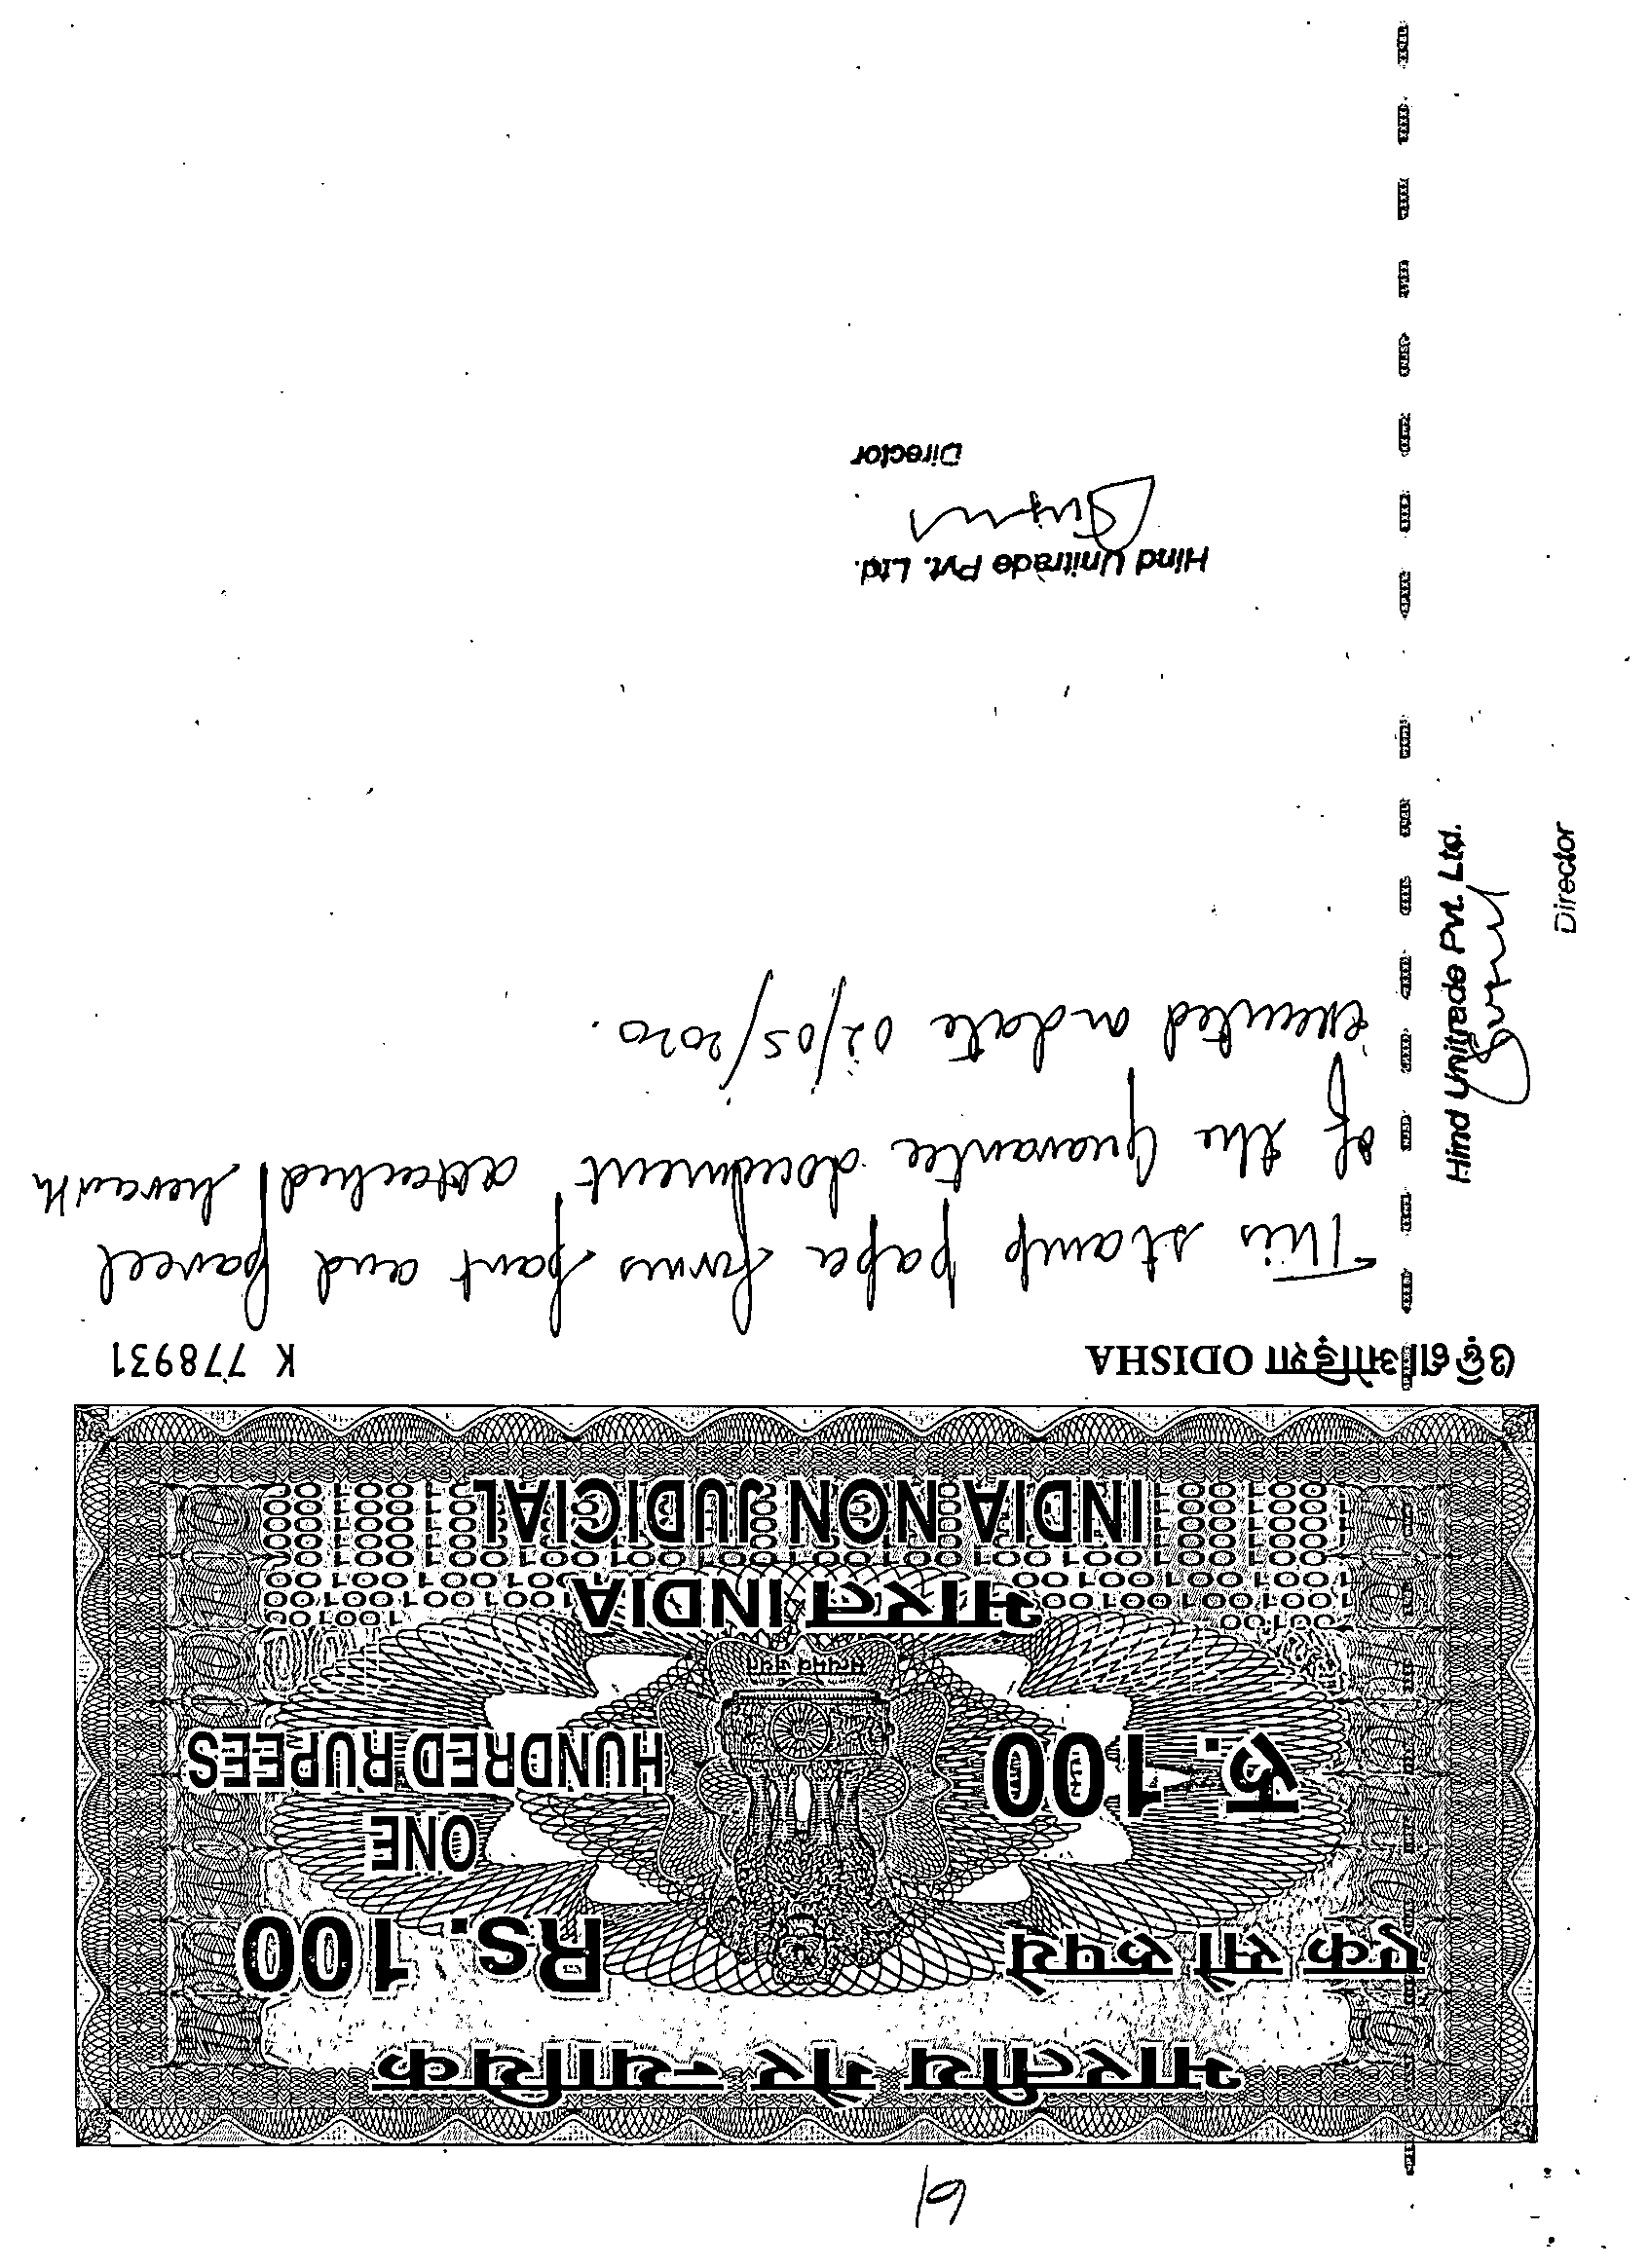 61
भारतीय गैर न्यायिक
एक सौ रुपये
Rs. 100
रु. 100
ONE
HUNDRED RUPEES
सत्यमेव जयते
भारत INDIA
INDIA NON JUDICIAL
ଓଡ଼ିଶା ओड़िशा ODISHA
K 778931
This stamp paper forms part and parcel
of the Guarantee document attached herewith
executed on date 02/05/2020.
Hind Unitrade Pvt. Ltd.
Director
Hind Unitrade Pvt. Ltd.
Director